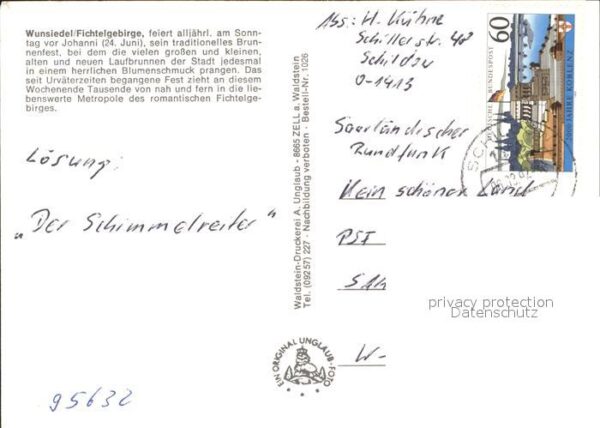 Wunsiedel/Fichtelgebirge, feiert alljährl. am Sonn-
tag vor Johanni (24. Juni), sein traditionelles Brun-
nenfest, bei dem die vielen großen und kleinen,
alten und neuen Laufbrunnen der Stadt jedesmal
in einem herrlichen Blumenschmuck prangen. Das
seit Urväterzeiten begangene Fest zieht an diesem
Wochenende Tausende von nah und fern in die lie-
benswerte Metropole des romantischen Fichtelge-
birges.
Lösung:
"Der Schimmelreiter"
95632
Waldstein-Druckerei A. Unglaub - 8665 ZELL a. Waldstein
Tel. (09257) 227 - Nachbildung verboten - Bestell-Nr. 1026
EIN ORIGINAL UNGLAUB-FOTO
Abs: H. Kühne
Schillerstr. 48
Schildau
O-7413
60
DEUTSCHE BUNDESPOST
2000 JAHRE KOBLENZ
Saarländischer
Rundfunk
Kein schöner Land
PSF
W-
privacy protection
Datenschutz